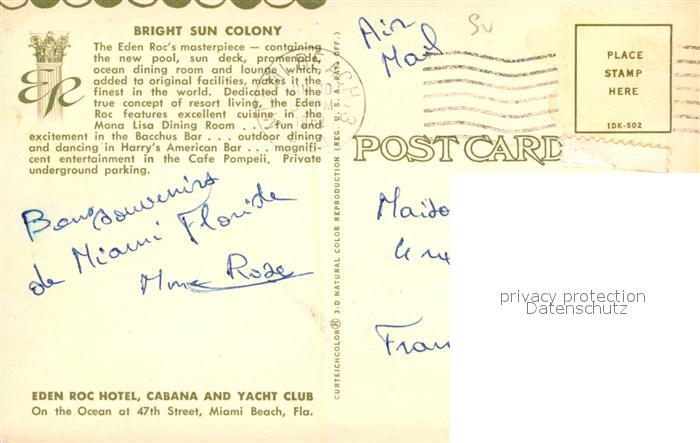 BRIGHT SUN COLONY
The Eden Roc's masterpiece — containing
the new pool, sun deck, promenade,
ocean dining room and lounge which,
added to original facilities, makes it the
finest in the world. Dedicated to the
true concept of resort living, the Eden
Roc features excellent cuisine in the
Mona Lisa Dining Room . . . fun and
excitement in the Bacchus Bar . . . outdoor dining
and dancing in Harry's American Bar . . . magnifi-
cent entertainment in the Cafe Pompeii. Private
underground parking.
ER
Bons souvenirs
de Miami Floride
Mme Rose
EDEN ROC HOTEL, CABANA AND YACHT CLUB
On the Ocean at 47th Street, Miami Beach, Fla.
CURTEICHCOLOR® 3-D NATURAL COLOR REPRODUCTION (REG. U.S.A. PAT. OFF.)
Air
Mail
PLACE
STAMP
HERE
1DK-502
POST CARD
Maiso
le
Fran
privacy protection
Datenschutz